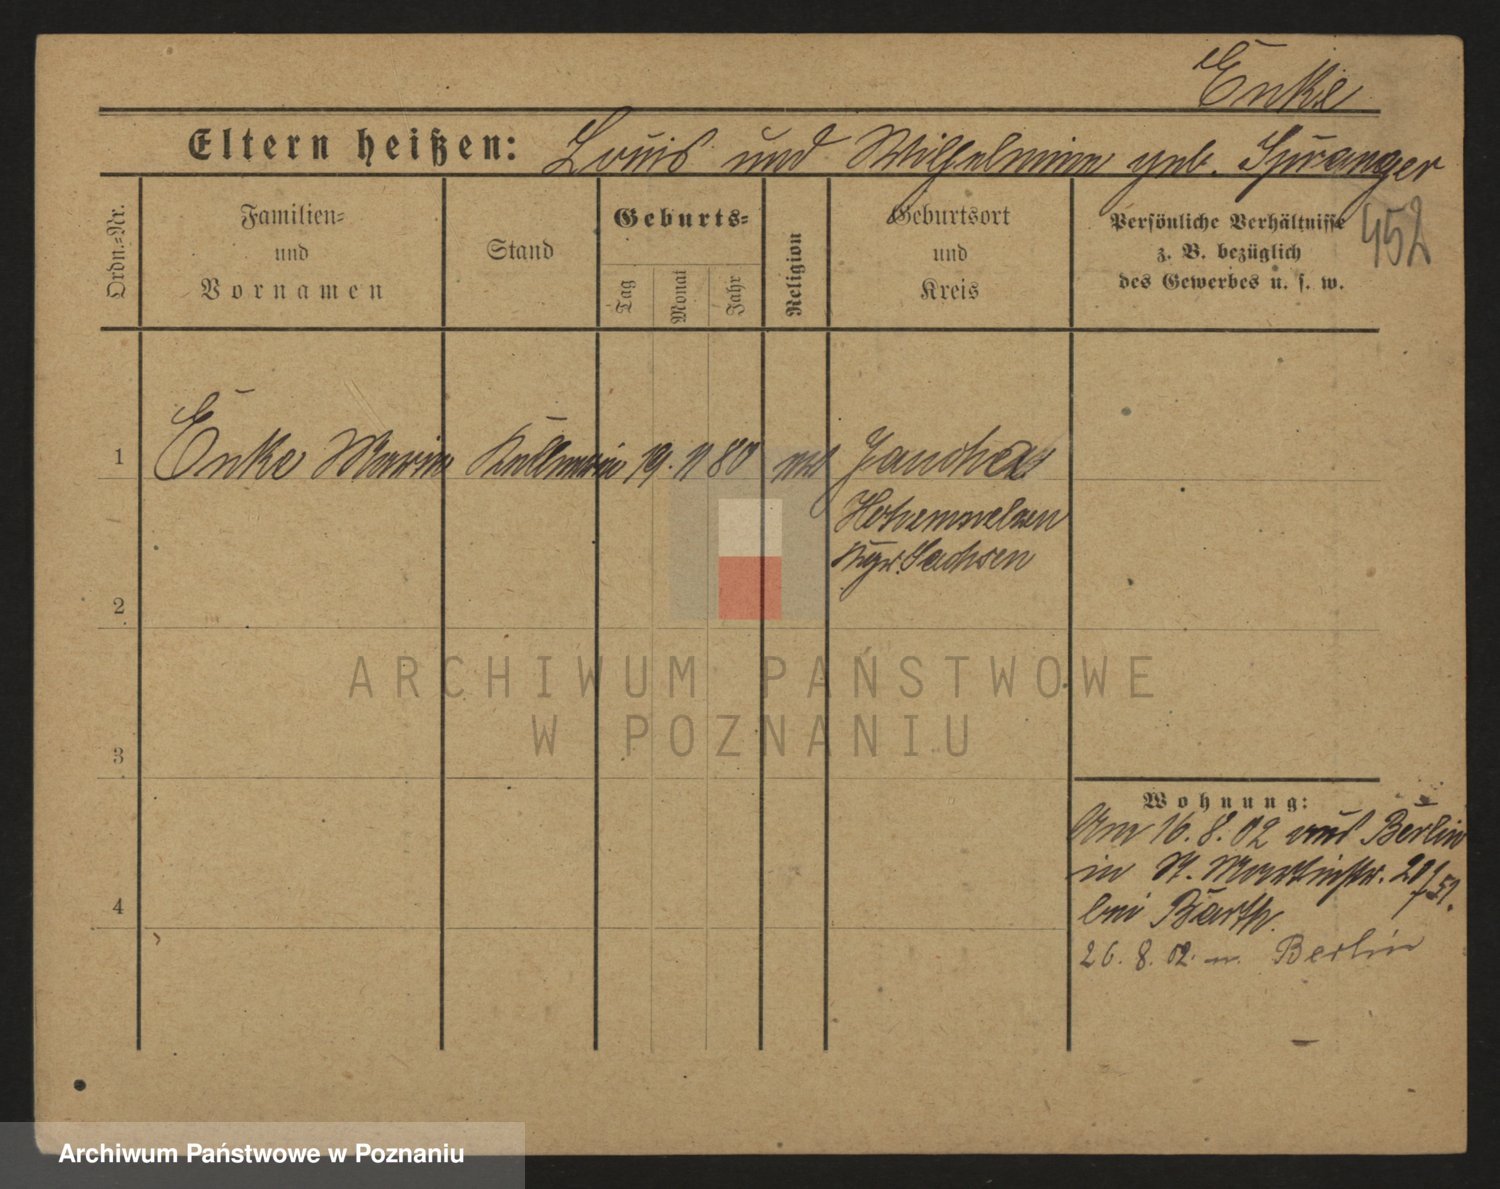 Enke
Eltern heißen: Louis und Wilhelmine geb. Spranger
Ordn.-Nr.
Familien-
und
Vornamen
Stand
Geburts-
Tag
Monat
Jahr
Religion
Geburtsort
und
Kreis
Persönliche Verhältnisse
z. B. bezüglich
des Gewerbes u. s. w.
452
1 Enke Marie Kellnerin 19. 11 80
Sachsen
2
3
4
ARCHIWUM PAŃSTWOWE
W POZNANIU
Wohnung:
Am 16. 8. 02 aus Berlin
in St. Martinstr.
bei Barth.
26. 8. 02. n. Berlin
Archiwum Państwowe w Poznaniu